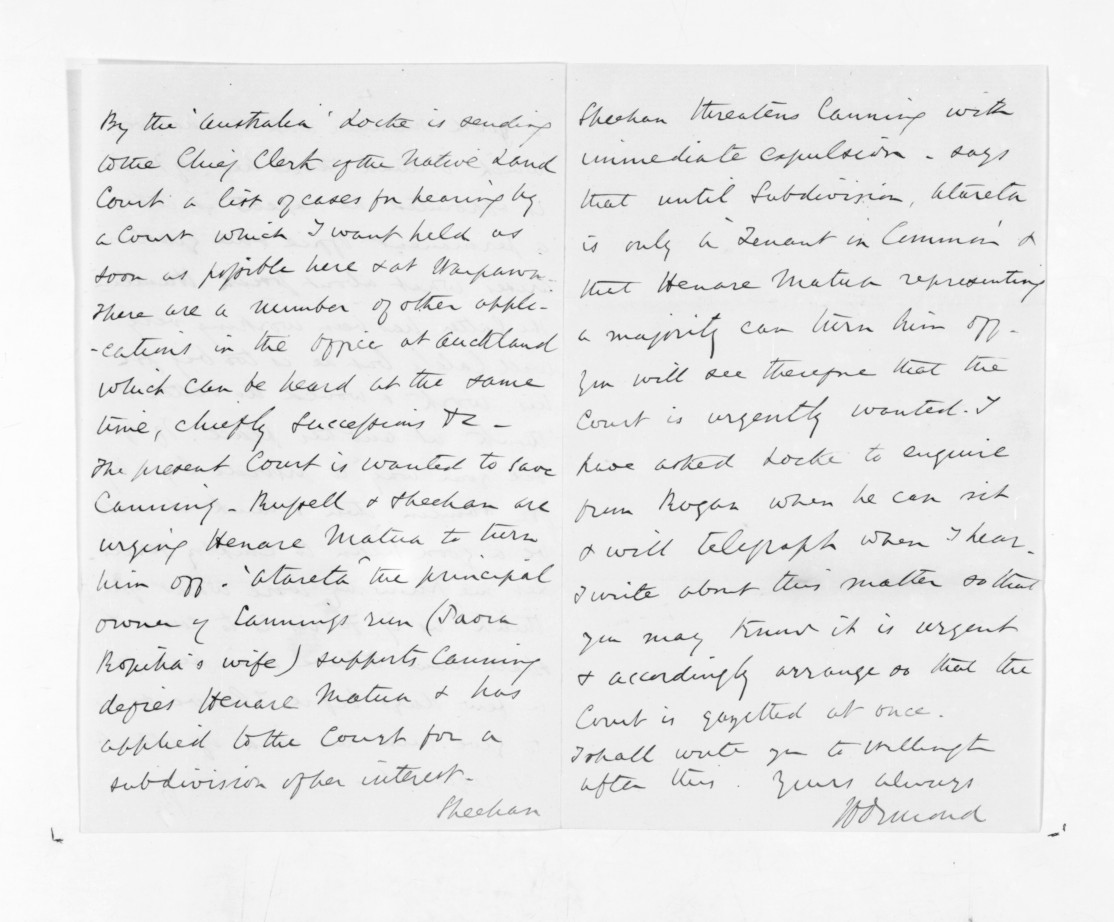 By the 'Australia' Locke is sending
to the Chief Clerk of the Native Land
Court a list of cases for hearing by
a Court which I want held as
soon as possible here & at Waipawa.
There are a number of other appli-
-cations in the office at Auckland
which can be heard at the same
time, chiefly successions &c -
The present Court is wanted to save
Canning - Russell & Sheehan are
urging Henare Matua to turn
him off. "Atareta" the principal
owner of Cannings run (Paora
Ropiha's wife) supports Canning
defies Henare Matua & has
applied to the Court for a
subdivision of her interest -
Sheehan
Sheehan threatens Canning with
immediate expulsion - says
that until subdivision, Atareta
is only a 'Tenant in Common' &
that Henare Matua representing
a majority can turn him off -
You will see therefore that the
Court is urgently wanted. I
have asked Locke to enquire
from Rogan when he can sit
& will telegraph when I hear -
I write about this matter so that
you may know it is urgent
& accordingly arrange so that the
Court is gazetted at once.
I shall write you to Wellington
after this. Yours always
JDOrmond